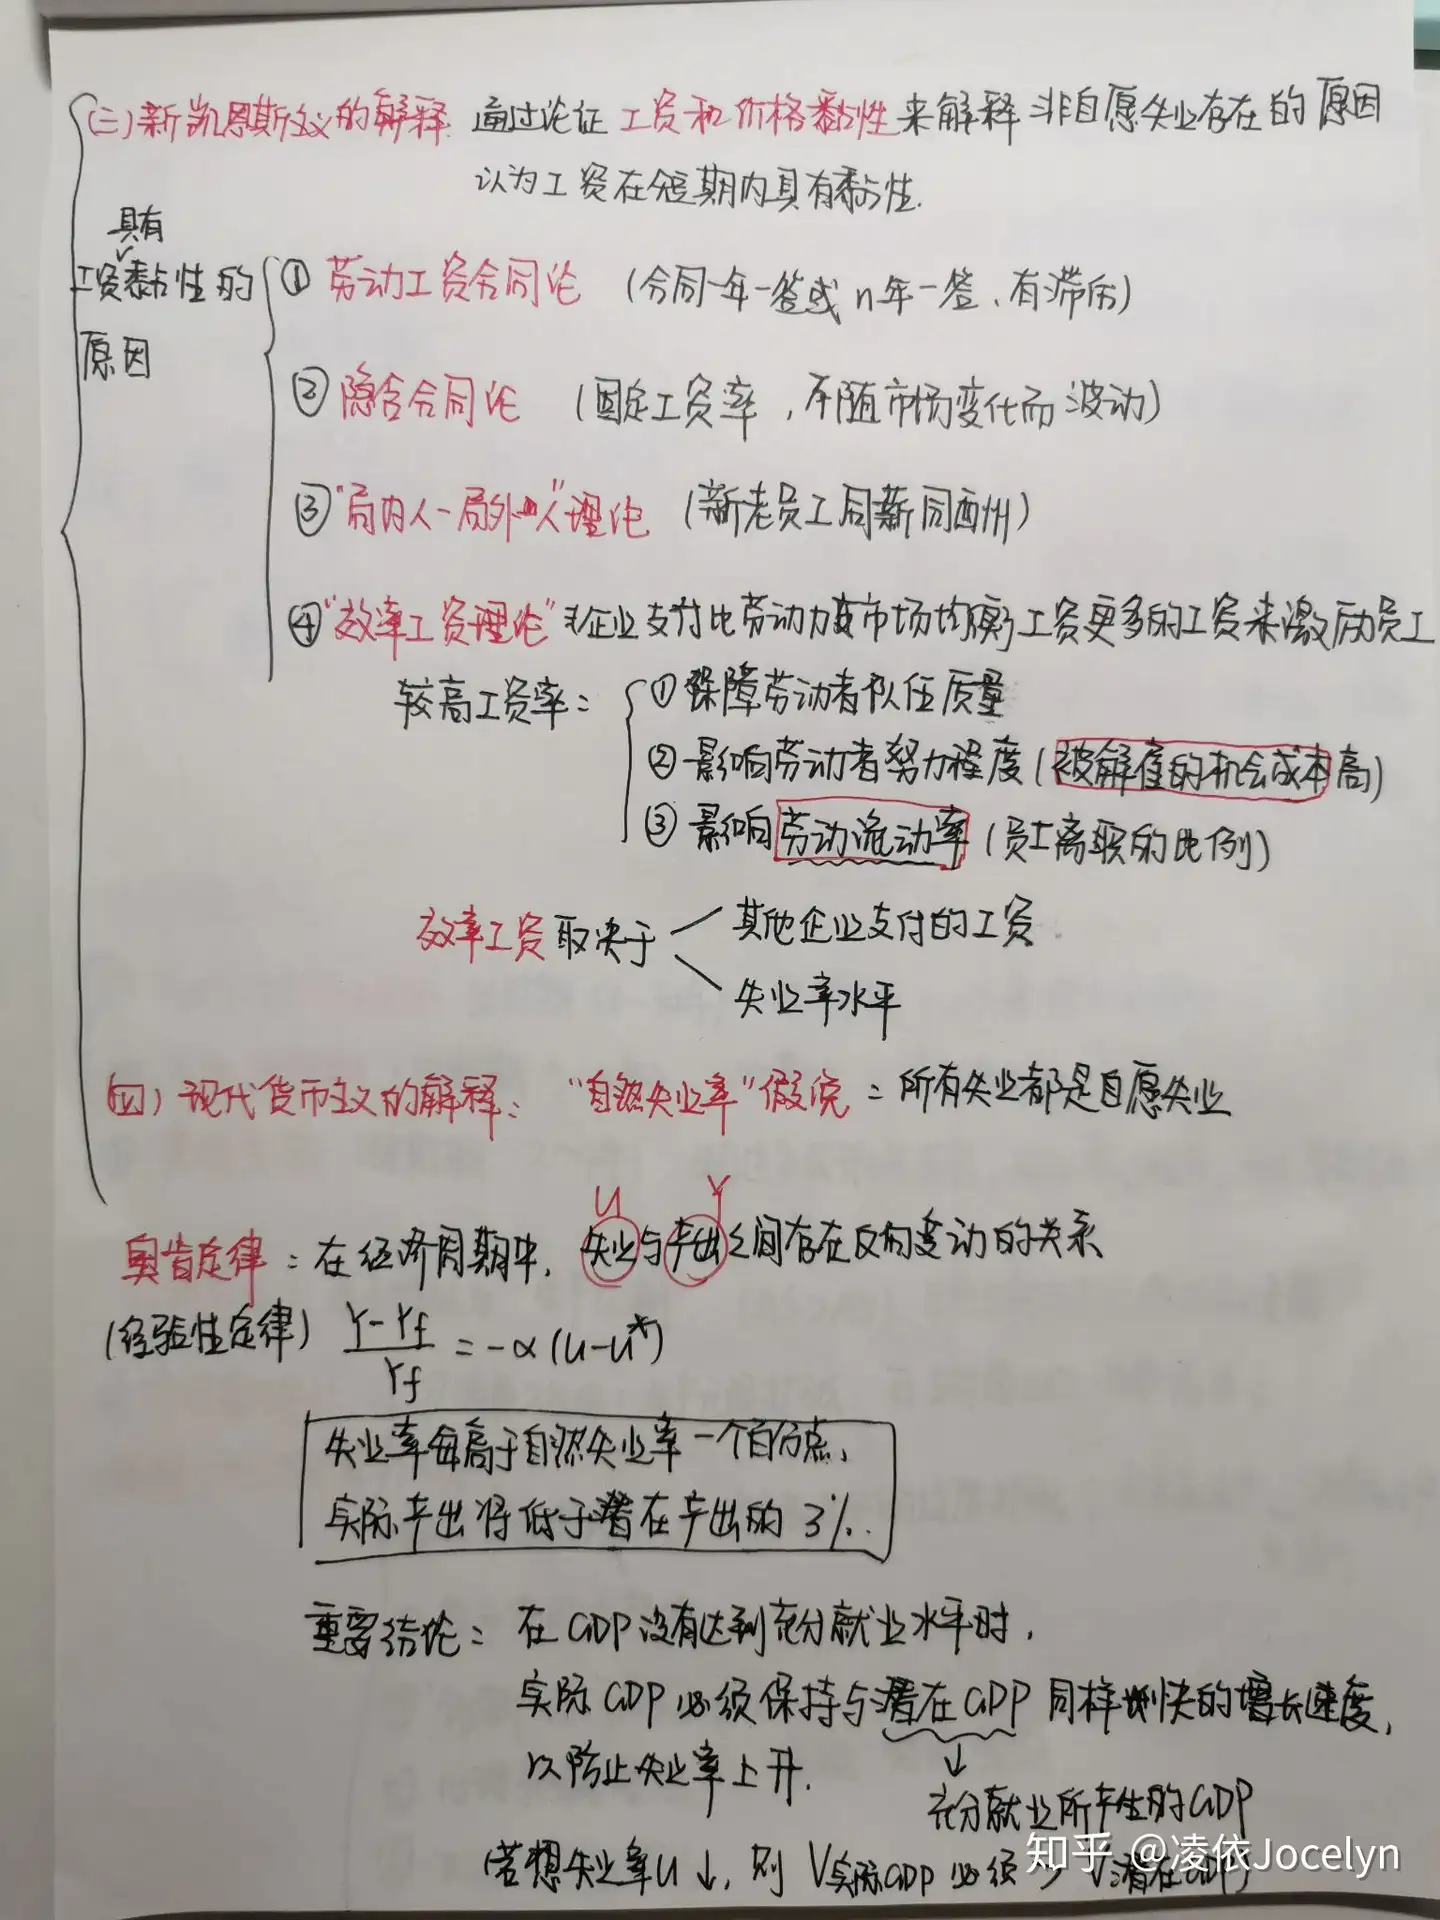 (三)新凯恩斯主义的解释 通过论证工资和价格黏性来解释非自愿失业存在的原因
认为工资在短期内具有黏性.
具有
工资黏性的
原因
① 劳动工资合同论 (合同一年一签或n年一签、有滞后)
② 隐含合同论 (固定工资率,不随市场变化而波动)
③ "局内人-局外人"理论 (新老员工同薪同酬)
④ "效率工资理论" 企业支付比劳动力市场均衡工资更多的工资来激励员工
较高工资率: ① 保障劳动者队伍质量
② 影响劳动者努力程度(被解雇的机会成本高)
③ 影响劳动流动率(员工离职的比例)
效率工资取决于 其他企业支付的工资
失业率水平
(四) 现代货币主义的解释: "自然失业率"假说:所有失业都是自愿失业
U Y
奥肯定律:在经济周期中,失业与产出之间存在反向变动的关系
(经验性定律) Y-Yf/Yf = -α(u-u*)
失业率每高于自然失业率一个百分点,
实际产出将低于潜在产出的3%.
重要结论:在GDP没有达到充分就业水平时,
实际GDP必须保持与潜在GDP同样快的增长速度,
以防止失业率上升.
↓
充分就业所产生的GDP
(若想失业率u↓,则V实际GDP必须 > V潜在GDP)
知乎 @凌依Jocelyn